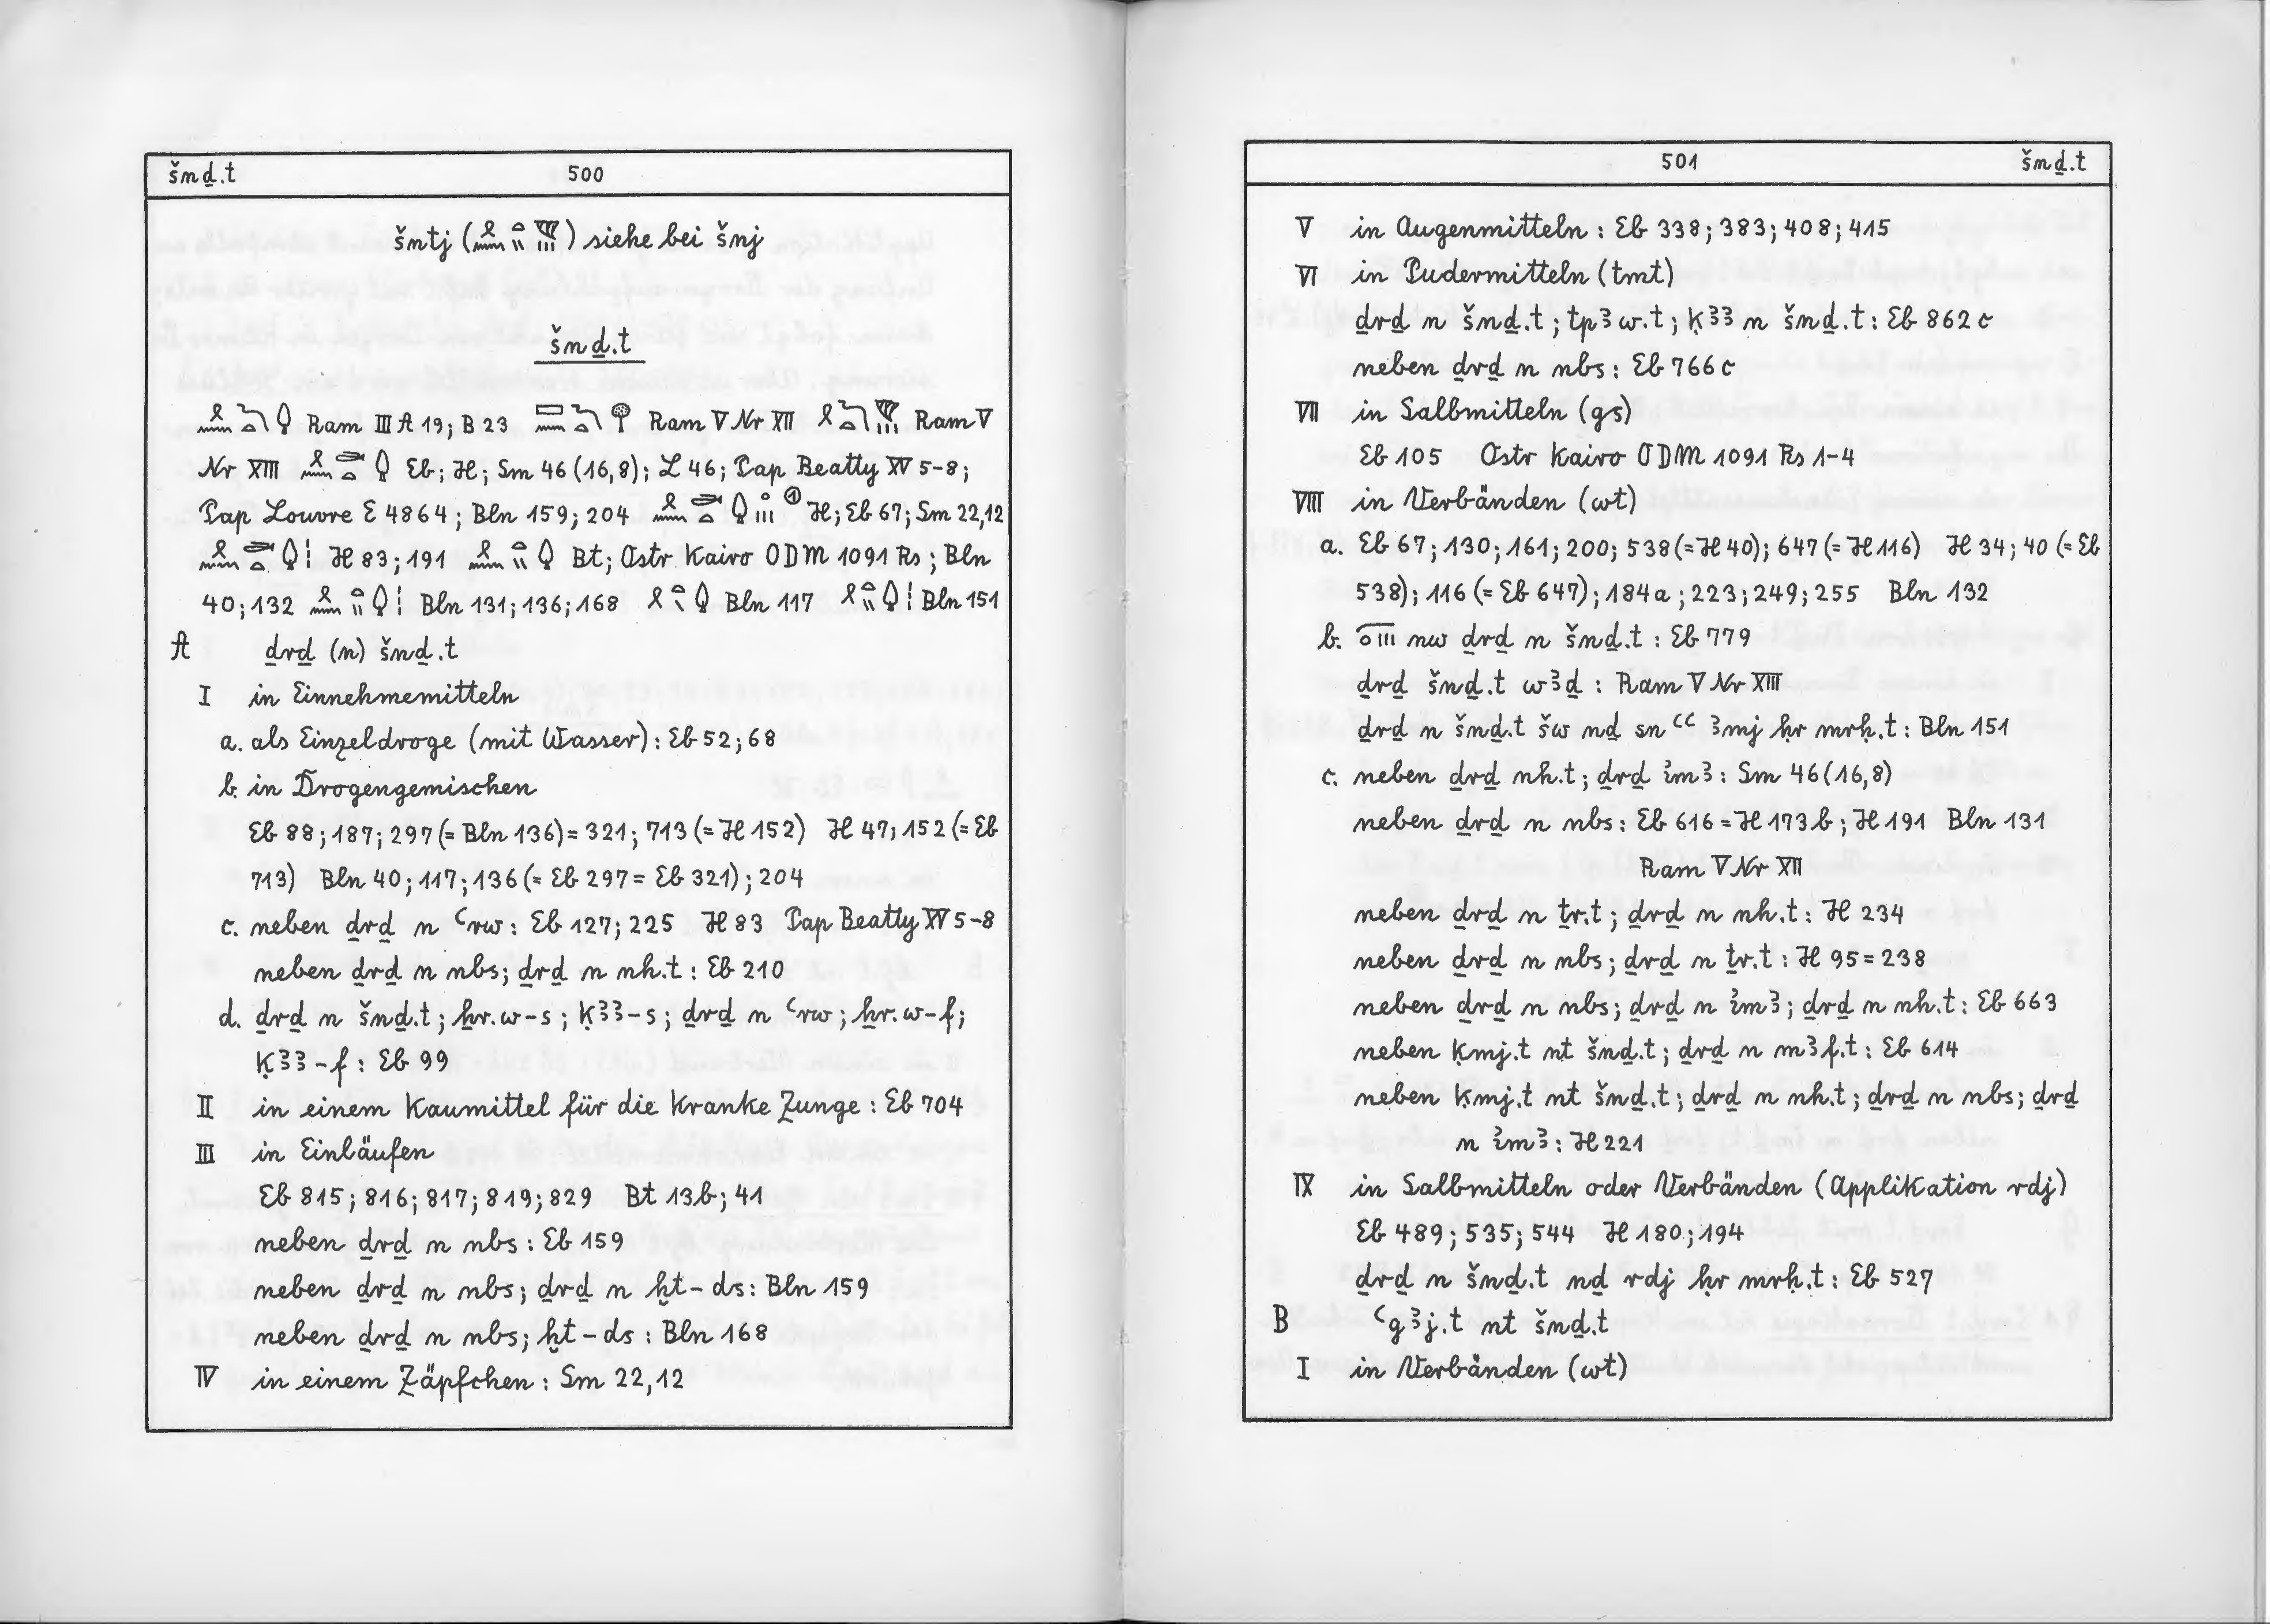 šnḏ.t 500
šntj (𓍲𓈖𓏏𓏭𓆰𓏥) siehe bei šnj
šnḏ.t
Ram III A 19; B 23 Ram V Nr XII Ram V
Nr XIII Eb; H; Sm 46 (16,8); L 46; Pap Beatty XV 5-8;
Pap Louvre E 4864; Bln 159; 204 ① H; Eb 67; Sm 22,12
H 83; 191 Bt; Ostr Kairo ODM 1091 Rs; Bln
40; 132 Bln 131; 136; 168 Bln 117 Bln 151
A ḏrḏ (n) šnḏ.t
I in Einnehmemitteln
a. als Einzeldroge (mit Wasser): Eb 52; 68
b. in Drogengemischen
Eb 88; 187; 297 (= Bln 136) = 321; 713 (= H 152) H 47; 152 (= Eb
713) Bln 40; 117; 136 (= Eb 297 = Eb 321); 204
c. neben ḏrḏ n ꜥrw: Eb 127; 225 H 83 Pap Beatty XV 5-8
neben ḏrḏ n nbs; ḏrḏ n nh.t: Eb 210
d. ḏrḏ n šnḏ.t; ẖr.w-s; ḳꜣꜣ-s; ḏrḏ n ꜥrw; ẖr.w-f;
ḳꜣꜣ-f: Eb 99
II in einem Kaumittel für die kranke Zunge: Eb 704
III in Einläufen
Eb 815; 816; 817; 819; 829 Bt 13b; 41
neben ḏrḏ n nbs: Eb 159
neben ḏrḏ n nbs; ḏrḏ n ḫt-ds: Bln 159
neben ḏrḏ n nbs; ḫt-ds: Bln 168
IV in einem Zäpfchen: Sm 22,12
501 šnḏ.t
V in Augenmitteln: Eb 338; 383; 408; 415
VI in Pudermitteln (tmt)
ḏrḏ n šnḏ.t; tpꜣw.t; ḳꜣꜣ n šnḏ.t: Eb 862c
neben ḏrḏ n nbs: Eb 766c
VII in Salbmitteln (gs)
Eb 105 Ostr Kairo ODM 1091 Rs 1-4
VIII in Verbänden (wt)
a. Eb 67; 130; 161; 200; 538 (= H 40); 647 (= H 116) H 34; 40 (= Eb
538); 116 (= Eb 647); 184a; 223; 249; 255 Bln 132
b. nw ḏrḏ n šnḏ.t: Eb 779
ḏrḏ šnḏ.t wꜣḏ: Ram V Nr XIII
ḏrḏ n šnḏ.t šw nḏ sn ꜥꜥ ꜣmj ḥr mrḥ.t: Bln 151
c. neben ḏrḏ nh.t; ḏrḏ ı͗mꜣ: Sm 46 (16,8)
neben ḏrḏ n nbs: Eb 616 = H 173b; H 191 Bln 131
Ram V Nr XII
neben ḏrḏ n ṯr.t; ḏrḏ n nh.t: H 234
neben ḏrḏ n nbs; ḏrḏ n ṯr.t: H 95 = 238
neben ḏrḏ n nbs; ḏrḏ n ı͗mꜣ; ḏrḏ n nh.t: Eb 663
neben ḳmj.t nt šnḏ.t; ḏrḏ n mꜣf.t: Eb 614
neben ḳmj.t nt šnḏ.t; ḏrḏ n nh.t; ḏrḏ n nbs; ḏrḏ
n ı͗mꜣ: H 221
IX in Salbmitteln oder Verbänden (Applikation rdj)
Eb 489; 535; 544 H 180; 194
ḏrḏ n šnḏ.t nḏ rdj ḥr mrḥ.t: Eb 527
B ꜥgꜣj.t nt šnḏ.t
I in Verbänden (wt)